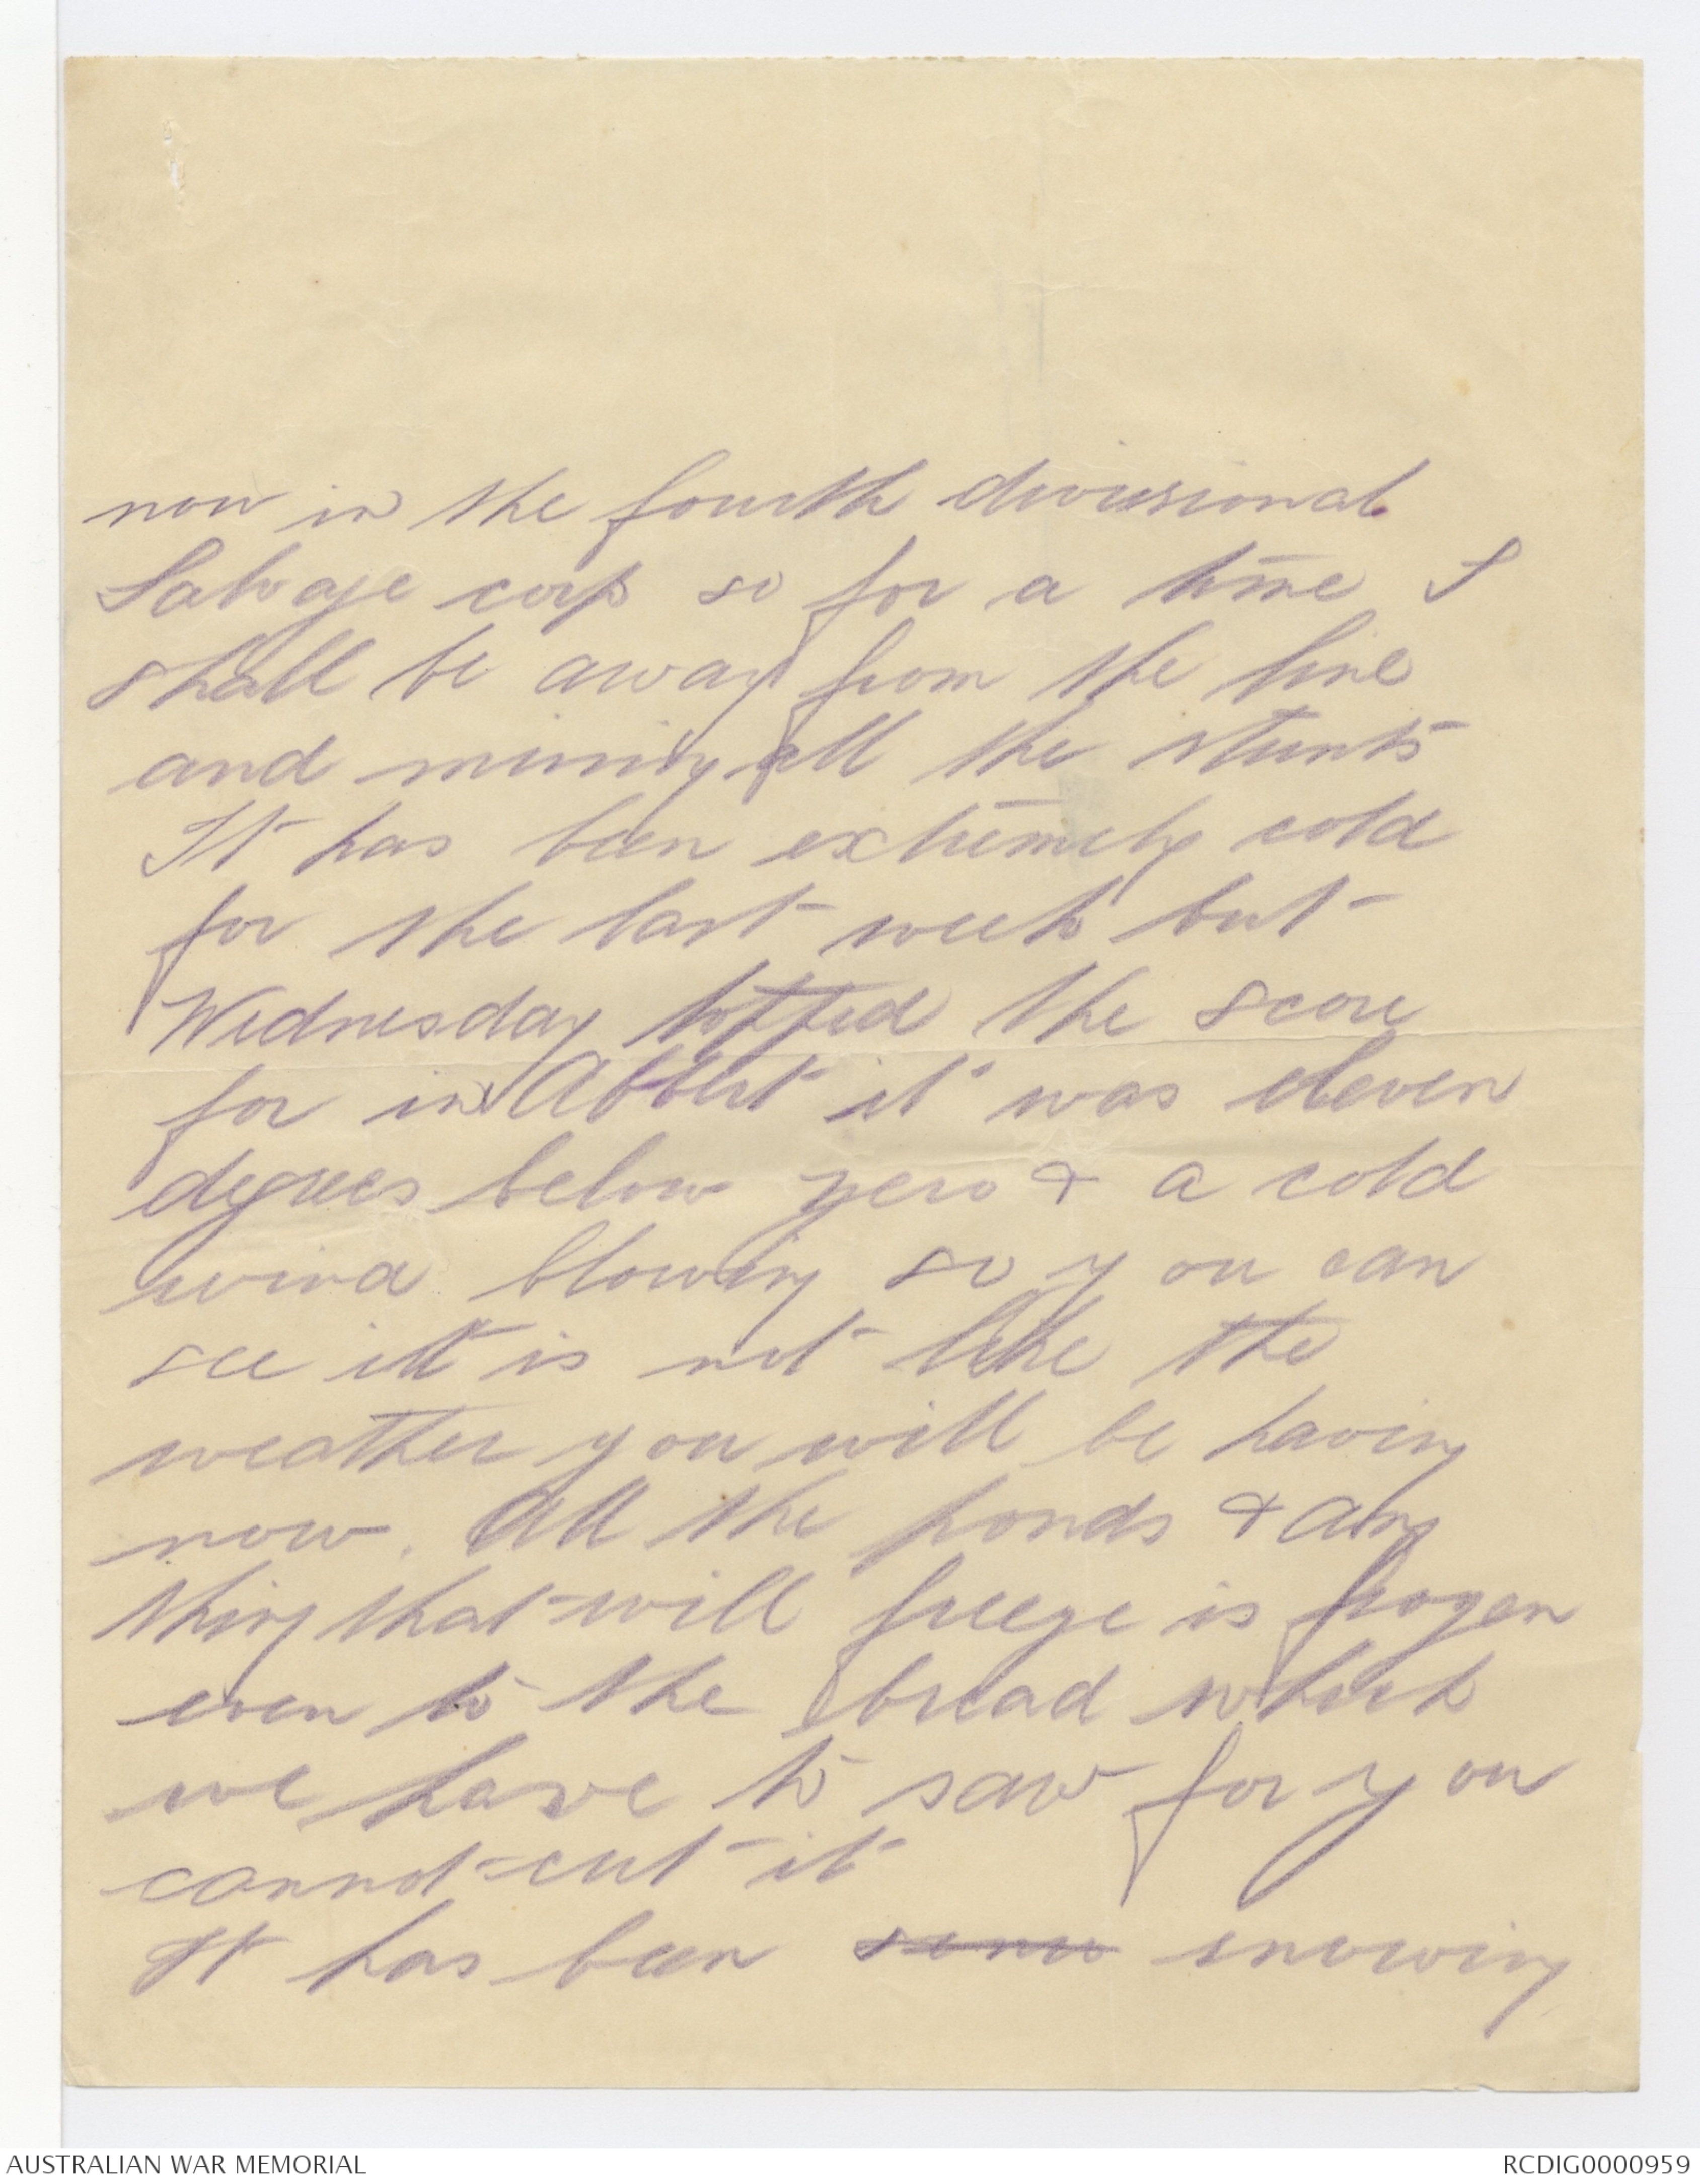 now in the fourth divisional
Salvage corp so for a time I
shall be away from the line
and missing all the stunts
It has been extremely cold
for the last week but
Wednesday topped the score
for in Albert it was eleven
degrees below zero & a cold
wind blowing so you can
see it is not like the
weather you will be having
now. All the ponds & any
thing that will freeze is frozen
even to the bread which
we have to saw for you
cannot cut it
It has been snowing
AUSTRALIAN WAR MEMORIAL
RCDIG0000959